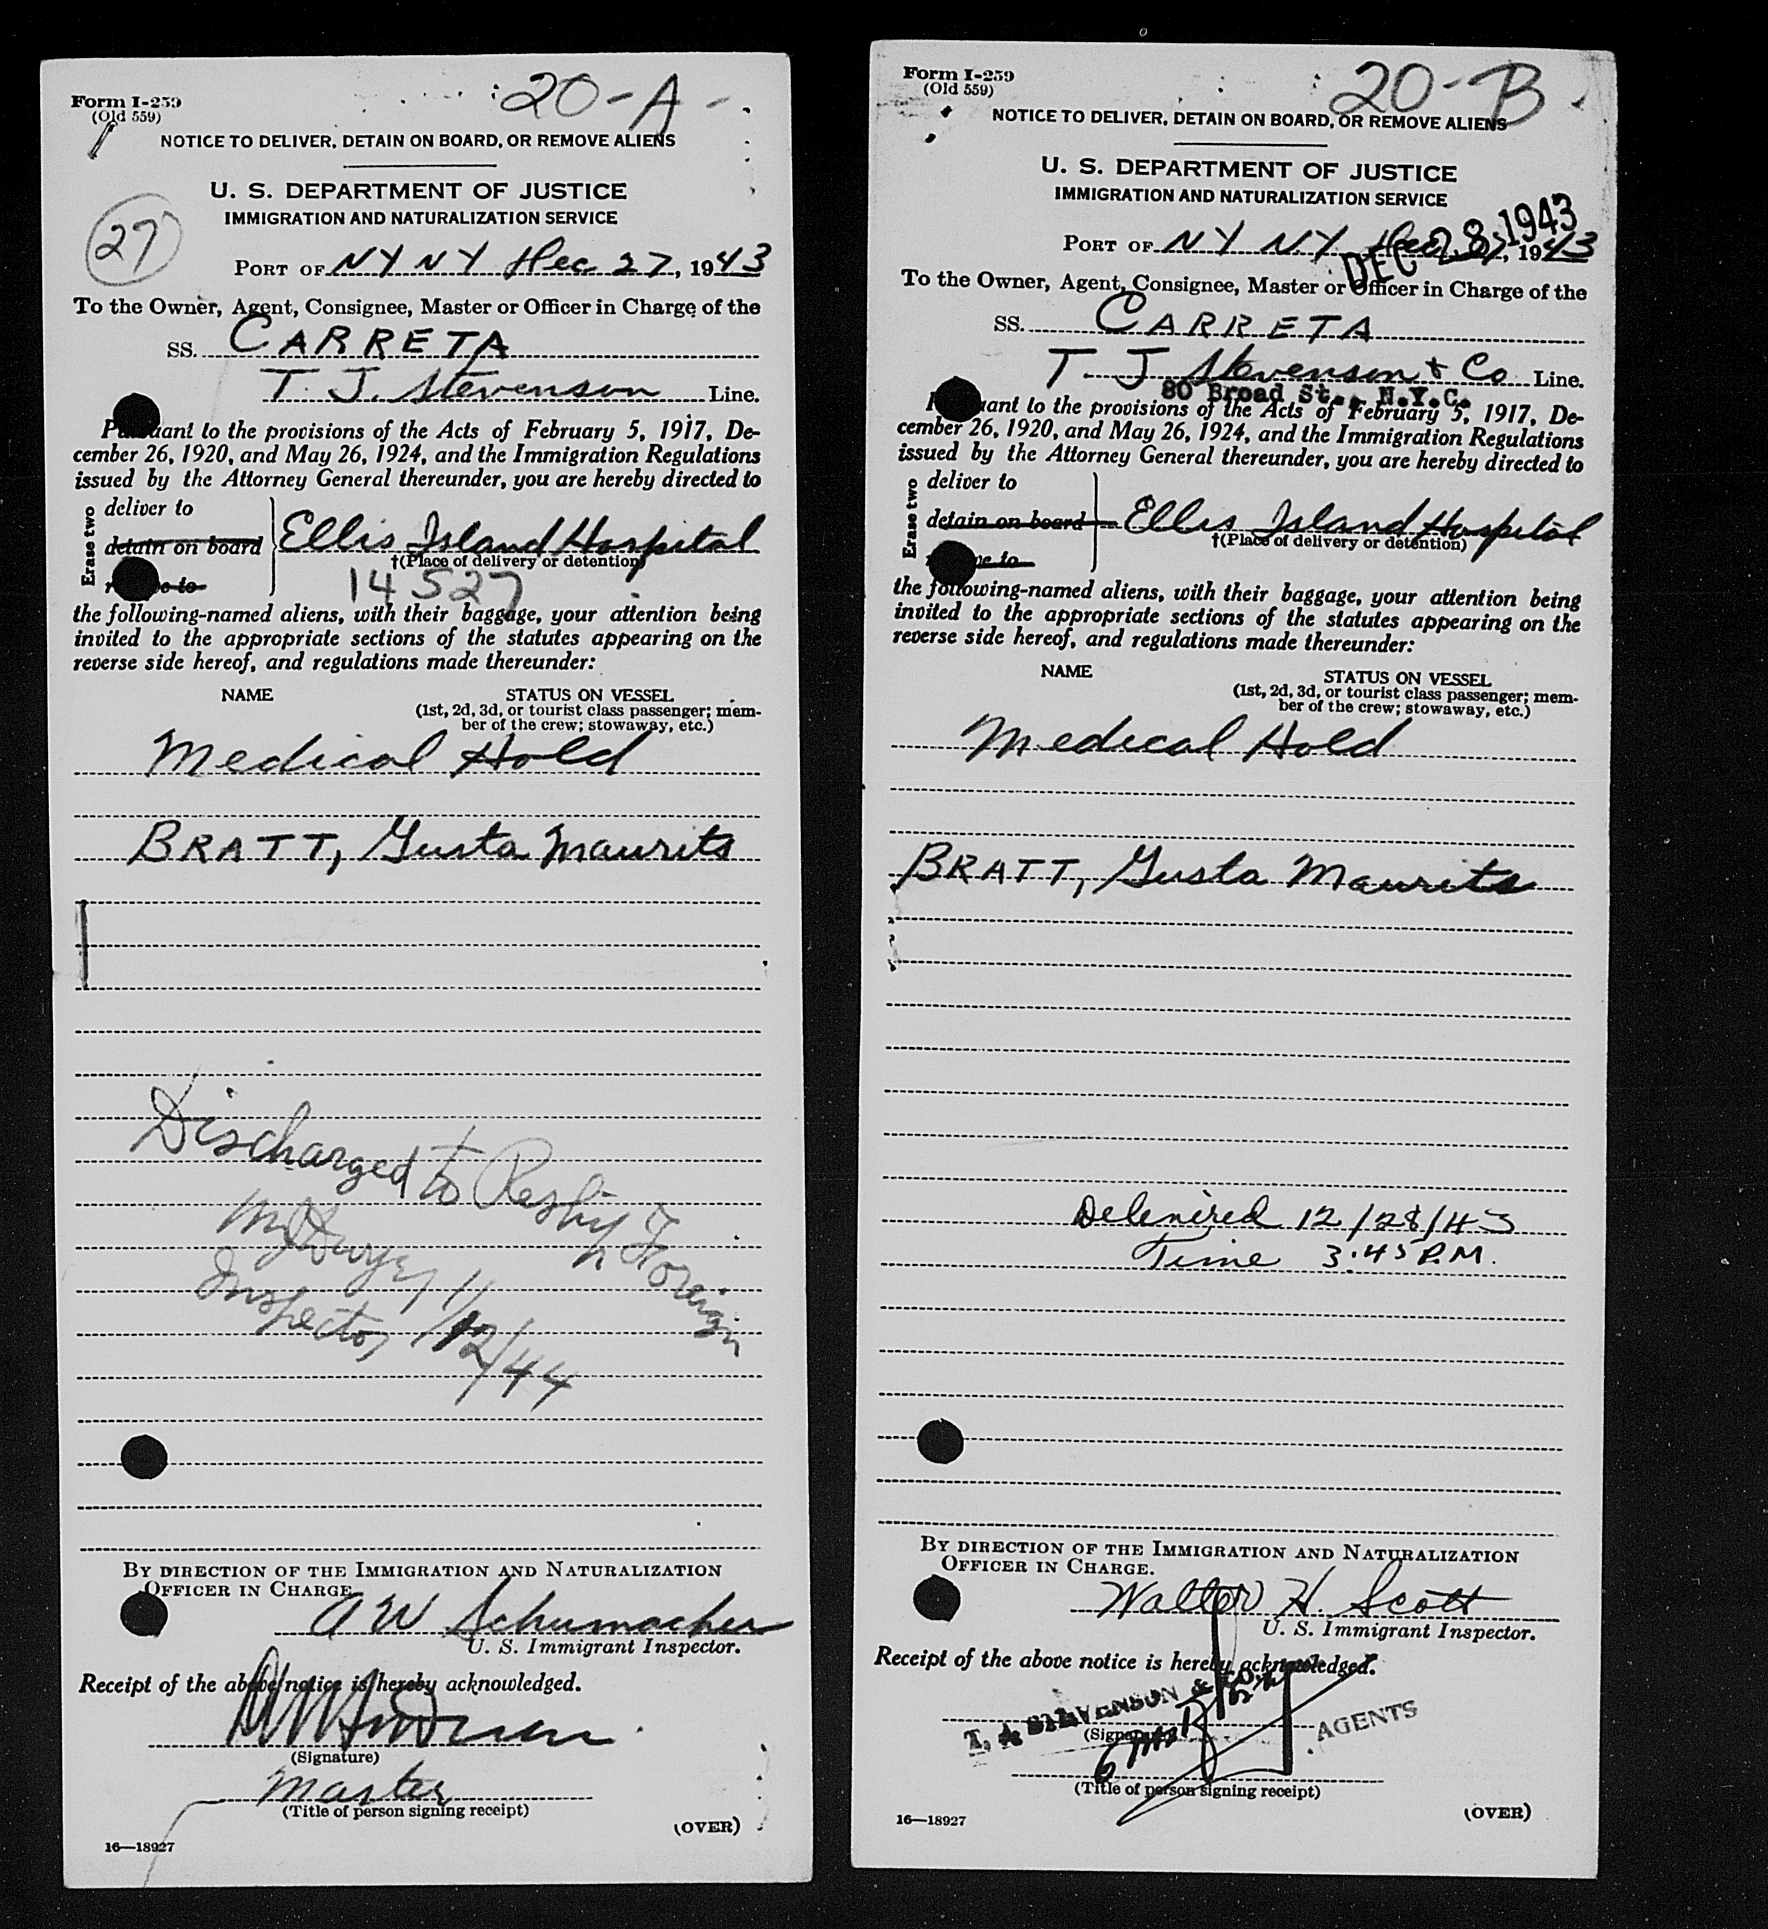 Form I-259
(Old 559)
20-A
NOTICE TO DELIVER, DETAIN ON BOARD, OR REMOVE ALIENS
U. S. DEPARTMENT OF JUSTICE
IMMIGRATION AND NATURALIZATION SERVICE
27
PORT OF N Y N Y Dec 27, 1943
To the Owner, Agent, Consignee, Master or Officer in Charge of the
SS. CARRETA
T. J. Stevenson Line.
Pursuant to the provisions of the Acts of February 5, 1917, De-
cember 26, 1920, and May 26, 1924, and the Immigration Regulations
issued by the Attorney General thereunder, you are hereby directed to
Erase two
deliver to
detain on board
Ellis Island Hospital
†(Place of delivery or detention)
14527
the following-named aliens, with their baggage, your attention being
invited to the appropriate sections of the statutes appearing on the
reverse side hereof, and regulations made thereunder:
NAME
STATUS ON VESSEL
(1st, 2d, 3d, or tourist class passenger; mem-
ber of the crew; stowaway, etc.)
Medical Hold
BRATT, Gusta Maurits
Discharged to Reship Foreign
Inspector 1/12/44
BY DIRECTION OF THE IMMIGRATION AND NATURALIZATION
OFFICER IN CHARGE
A W Schumacher
U. S. Immigrant Inspector.
Receipt of the above notice is hereby acknowledged.
(Signature)
Master
(Title of person signing receipt)
(OVER)
16—18927
Form I-259
(Old 559)
20-B
NOTICE TO DELIVER, DETAIN ON BOARD, OR REMOVE ALIENS
U. S. DEPARTMENT OF JUSTICE
IMMIGRATION AND NATURALIZATION SERVICE
DEC 28 1943
PORT OF N Y N.Y Dec 27, 1943
To the Owner, Agent, Consignee, Master or Officer in Charge of the
SS. CARRETA
T. J Stevenson & Co Line.
80 Broad St., N.Y.C.
Pursuant to the provisions of the Acts of February 5, 1917, De-
cember 26, 1920, and May 26, 1924, and the Immigration Regulations
issued by the Attorney General thereunder, you are hereby directed to
Erase two
deliver to
detain on board
Ellis Island Hospital
†(Place of delivery or detention)
the following-named aliens, with their baggage, your attention being
invited to the appropriate sections of the statutes appearing on the
reverse side hereof, and regulations made thereunder:
NAME
STATUS ON VESSEL
(1st, 2d, 3d, or tourist class passenger; mem-
ber of the crew; stowaway, etc.)
Medical Hold
BRATT, Gusta Maurits
Delenired 12/28/43
Time 3:45 P.M.
BY DIRECTION OF THE IMMIGRATION AND NATURALIZATION
OFFICER IN CHARGE.
Walter H. Scott
U. S. Immigrant Inspector.
Receipt of the above notice is hereby acknowledged.
T. J. STEVENSON & CO.
AGENTS
(Signature)
(Title of person signing receipt)
(OVER)
16—18927